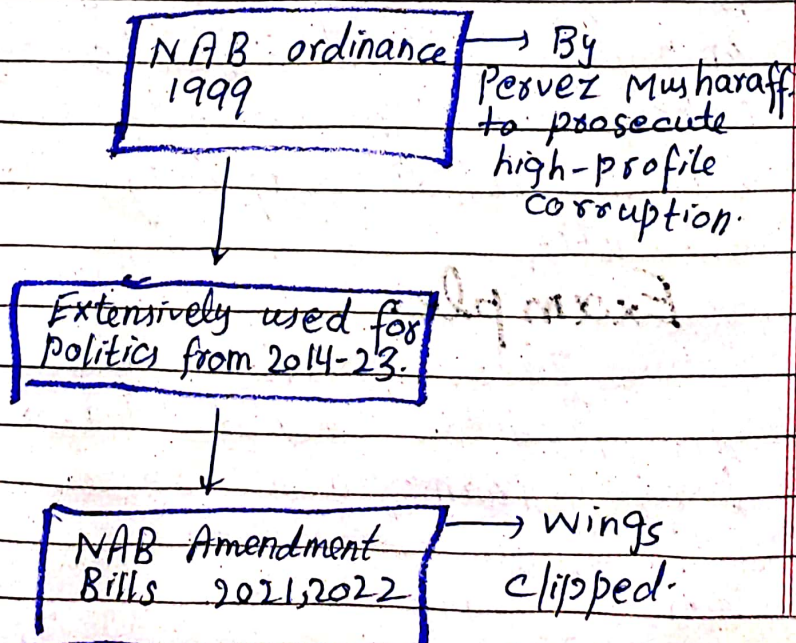 NAB ordinance → By
1999
Pervez Musharaff
to prosecute
high-profile
corruption.
Extensively used for
politics from 2014-23.
NAB Amendment → Wings
Bills 2021,2022 clipped.